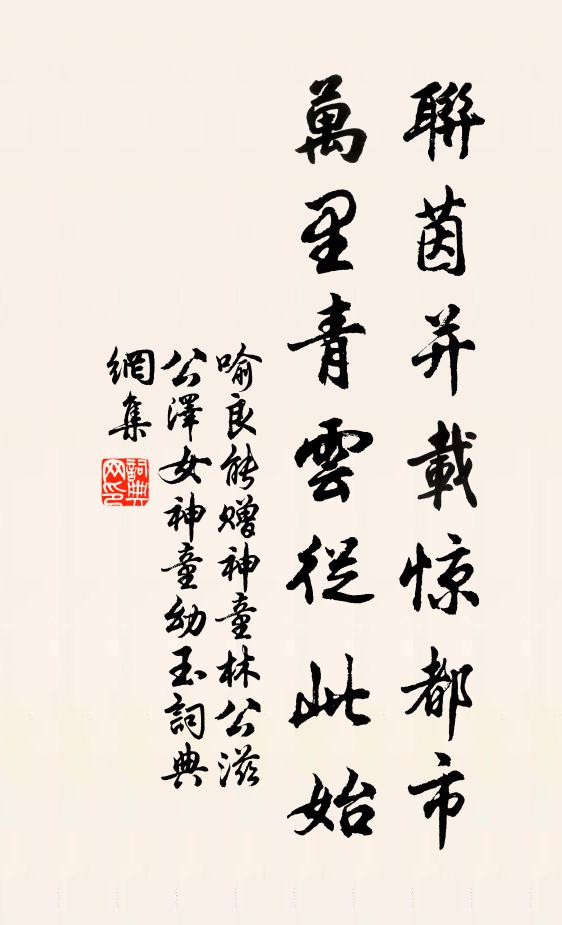 聯茵并載惊都市
萬里青雲從此始
喻良能赠神童林公滋
公澤女神童幼玉詞典
網集
詞典网印